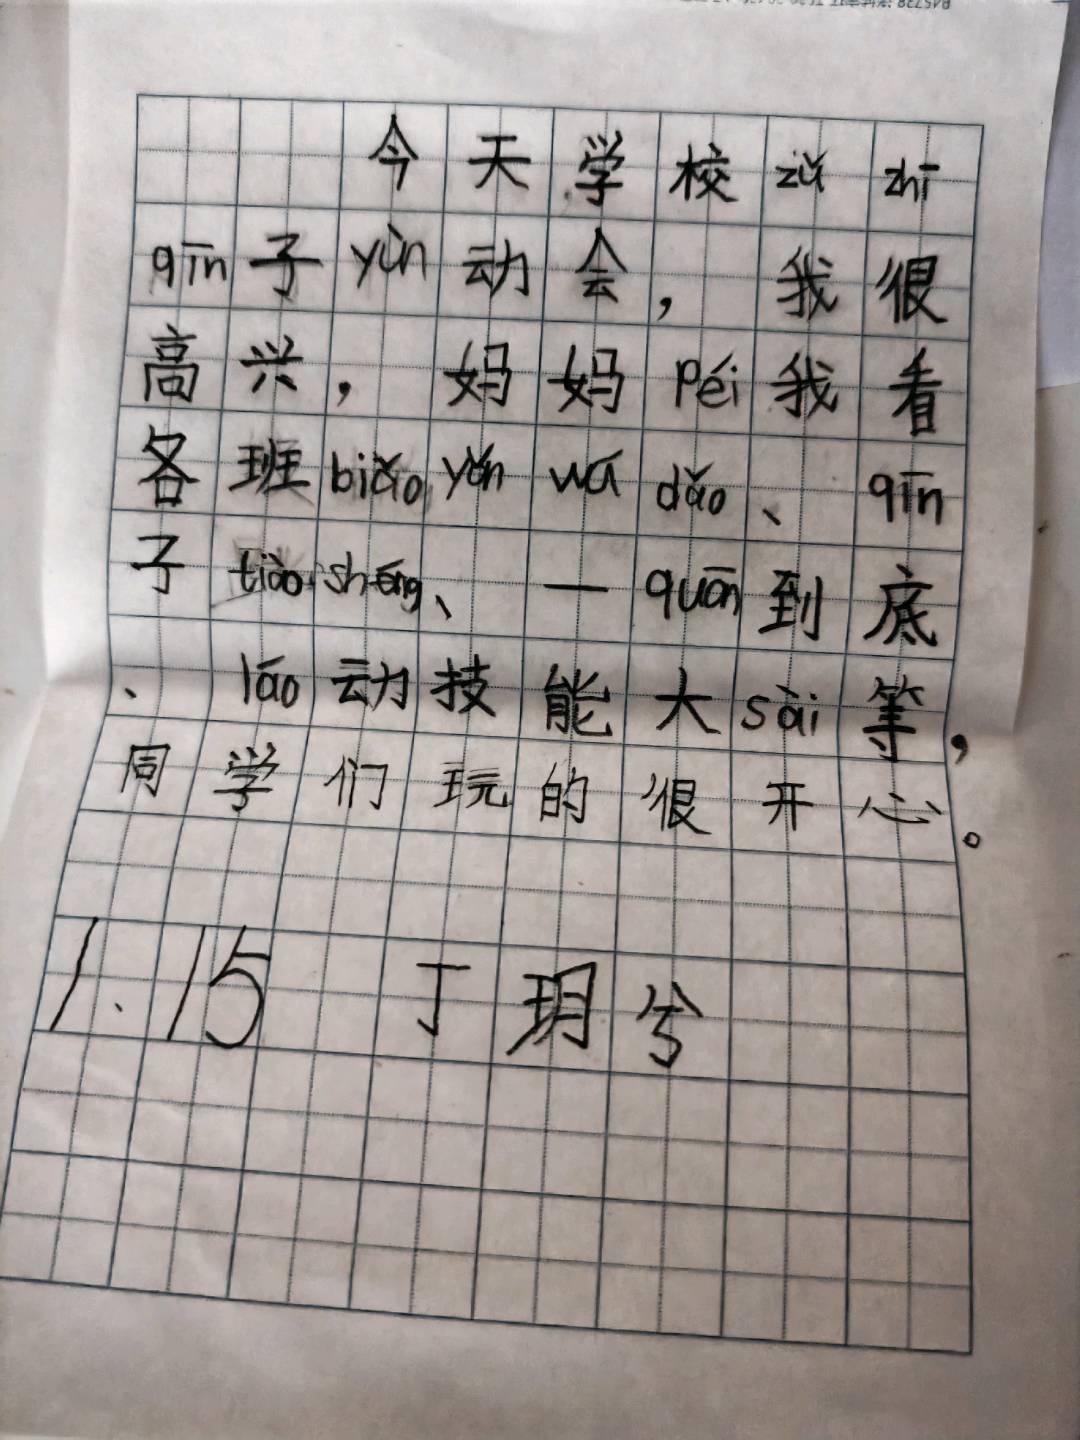 今天学校zǔ zhī
qīn子yùn动会，我很
高兴，妈妈péi我看
各班biǎo yǎn wú dǎo、qīn
子tiào shéng、一quān到底
、láo动技能大sài等，
同学们玩的很开心。
1.15 丁玥兮